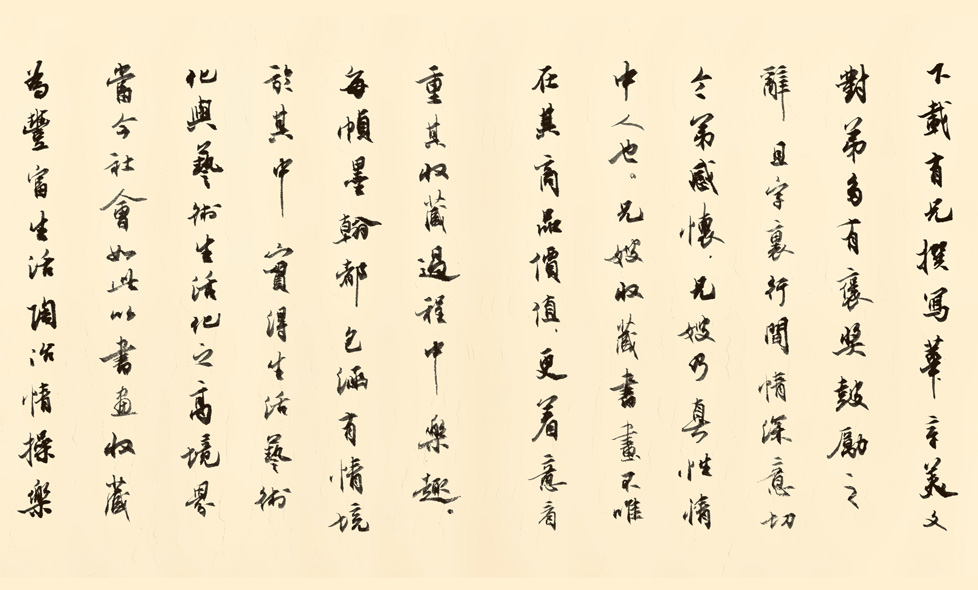 下載有兄撰寫華章美文
對弟多有褒奬鼓勵之
辭 且字裏行間情深意切
令弟感懷，兄嫂乃真性情
中人也。兄嫂收藏書畫不唯
在其商品價值，更着意看
重其收藏過程中樂趣。
每幀墨翰都包涵有情境
於其中 實得生活藝術
化與藝術生活化之高境界
當今社會如此以書画收藏
為豐富生活陶冶情操樂